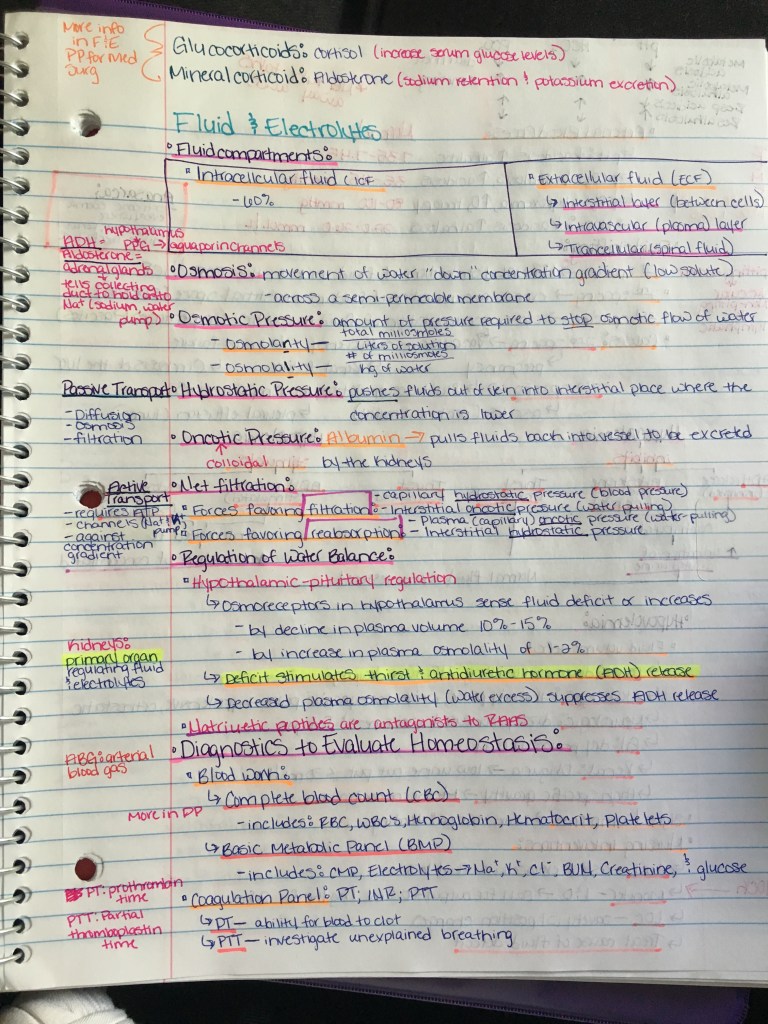 More info
in F&E
PP for Med
Surg
Glucocorticoids: cortisol (increase serum glucose levels)
Mineralcorticoid: Aldosterone (sodium retention & potassium excretion)
Fluid & Electrolytes
Fluid compartments:
Intracellular fluid (ICF
- 60%
Extracellular fluid (ECF)
↳ Interstitial layer (between cells)
↳ Intravascular (plasma) layer
↳ Trancellular (spinal fluid)
hypothalamus
ADH = PPG → aquaporin channels
Aldosterone =
adrenal glands
↳ tells collecting
duct to hold onto
Na+ (sodium, water
pump)
Osmosis: movement of water "down" concentration gradient (low solute)
- across a semi-permeable membrane
Osmotic Pressure: amount of pressure required to stop osmotic flow of water
- osmolarity — total milliosmoles
Liters of solution
- osmolality — # of milliosmoles
kg of water
Passive Transport
- Diffusion
- osmosis
- filtration
Hydrostatic Pressure: pushes fluids out of vein into interstitial place where the
concentration is lower
Oncotic Pressure: Albumin → pulls fluids back into vessel to be excreted
colloidal - by the kidneys
Active
Transport
- requires ATP
- channels (Na+ & K+
pump)
- against
concentration
gradient
Net filtration:
Forces favoring filtration: - capillary hydrostatic pressure (blood pressure)
- Interstitial oncotic pressure (water pulling)
Forces favoring reabsorption: - Plasma (capillary) oncotic pressure (water-pulling)
- Interstitial hydrostatic pressure
Regulation of Water Balance:
Hypothalamic-pituitary regulation
↳ Osmoreceptors in hypothalamus sense fluid deficit or increases
- by decline in plasma volume 10%-15%
- by increase in plasma osmolality of 1-2%
Kidneys:
primary organ
regulating fluid
& electrolytes
↳ Deficit stimulates thirst & antidiuretic hormone (ADH) release
↳ Decreased plasma osmolality (water excess) suppresses ADH release
Natriuetic peptides are antagonists to RAAS
Diagnostics to Evaluate Homeostasis:
ABG: arterial
blood gas
Blood work:
↳ Complete blood count (CBC)
More in PP
- includes: RBC, WBC's, Hemoglobin, Hematocrit, Platelets
↳ Basic Metabolic Panel (BMP)
- includes: CMP, Electrolytes → Na+, K+, Cl-, BUN, Creatinine, & glucose
PT: prothrombin
time
PTT: Partial
thromboplastin
time
Coagulation Panel: PT; INR; PTT
↳ PT — ability for blood to clot
↳ PTT — investigate unexplained breathing